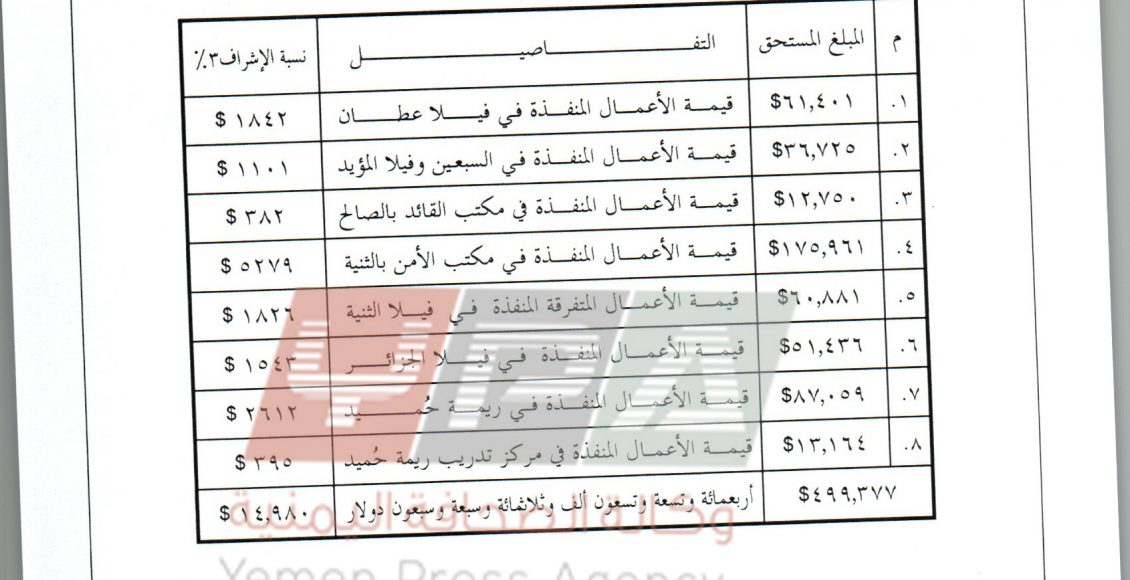 م المبلغ المستحق التفـــاصيـــل نسبة الإشراف٣٪
١. $٦١,٤٠١ قيمة الأعمال المنفذة في فيلا عطان $ ١٨٤٢
٢. $٣٦,٧٢٥ قيمة الأعمال المنفذة في السبعين وفيلا المؤيد $ ١١٠١
٣. $١٢,٧٥٠ قيمة الأعمال المنفذة في مكتب القائد بالصالح $ ٣٨٢
٤. $١٧٥,٩٦١ قيمة الأعمال المنفذة في مكتب الأمن بالثنية $ ٥٢٧٩
٥. $٦٠,٨٨١ قيمة الأعمال المتفرقة المنفذة في فيلا الثنية $ ١٨٢٦
٦. $٥١,٤٣٦ قيمة الأعمال المنفذة في فيلا الجزائر $ ١٥٤٣
٧. $٨٧,٠٥٩ قيمة الأعمال المنفذة في ريمة حُميد $ ٢٦١٢
٨. $١٣,١٦٤ قيمة الأعمال المنفذة في مركز تدريب ريمة حُميد $ ٣٩٥
$٤٩٩,٣٧٧ أربعمائة وتسعة وتسعون ألف وثلاثمائة وسبعة وسبعون دولار $ ١٤,٩٨٠
YPA
وكالة الصحافة اليمنية
Yemen Press Agency